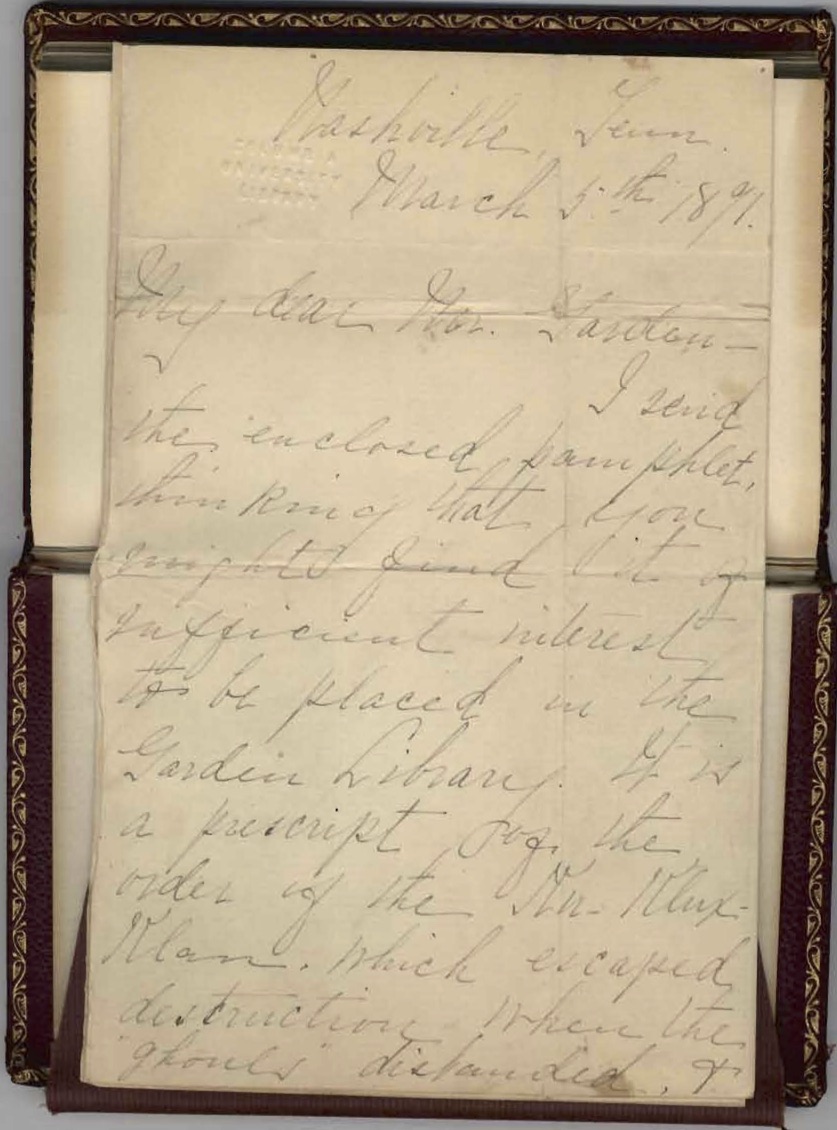 Nashville, Tenn.
COLUMBIA
UNIVERSITY
LIBRARY
March 5th 1891.
My dear Mr. Garden—
I send
the enclosed pamphlet,
thinking that you
might find it of
sufficient interest
to be placed in the
Garden Library. It is
a prescript of the
order of the Ku-Klux-
Klan, which escaped
destruction when the
"ghouls" disbanded, &